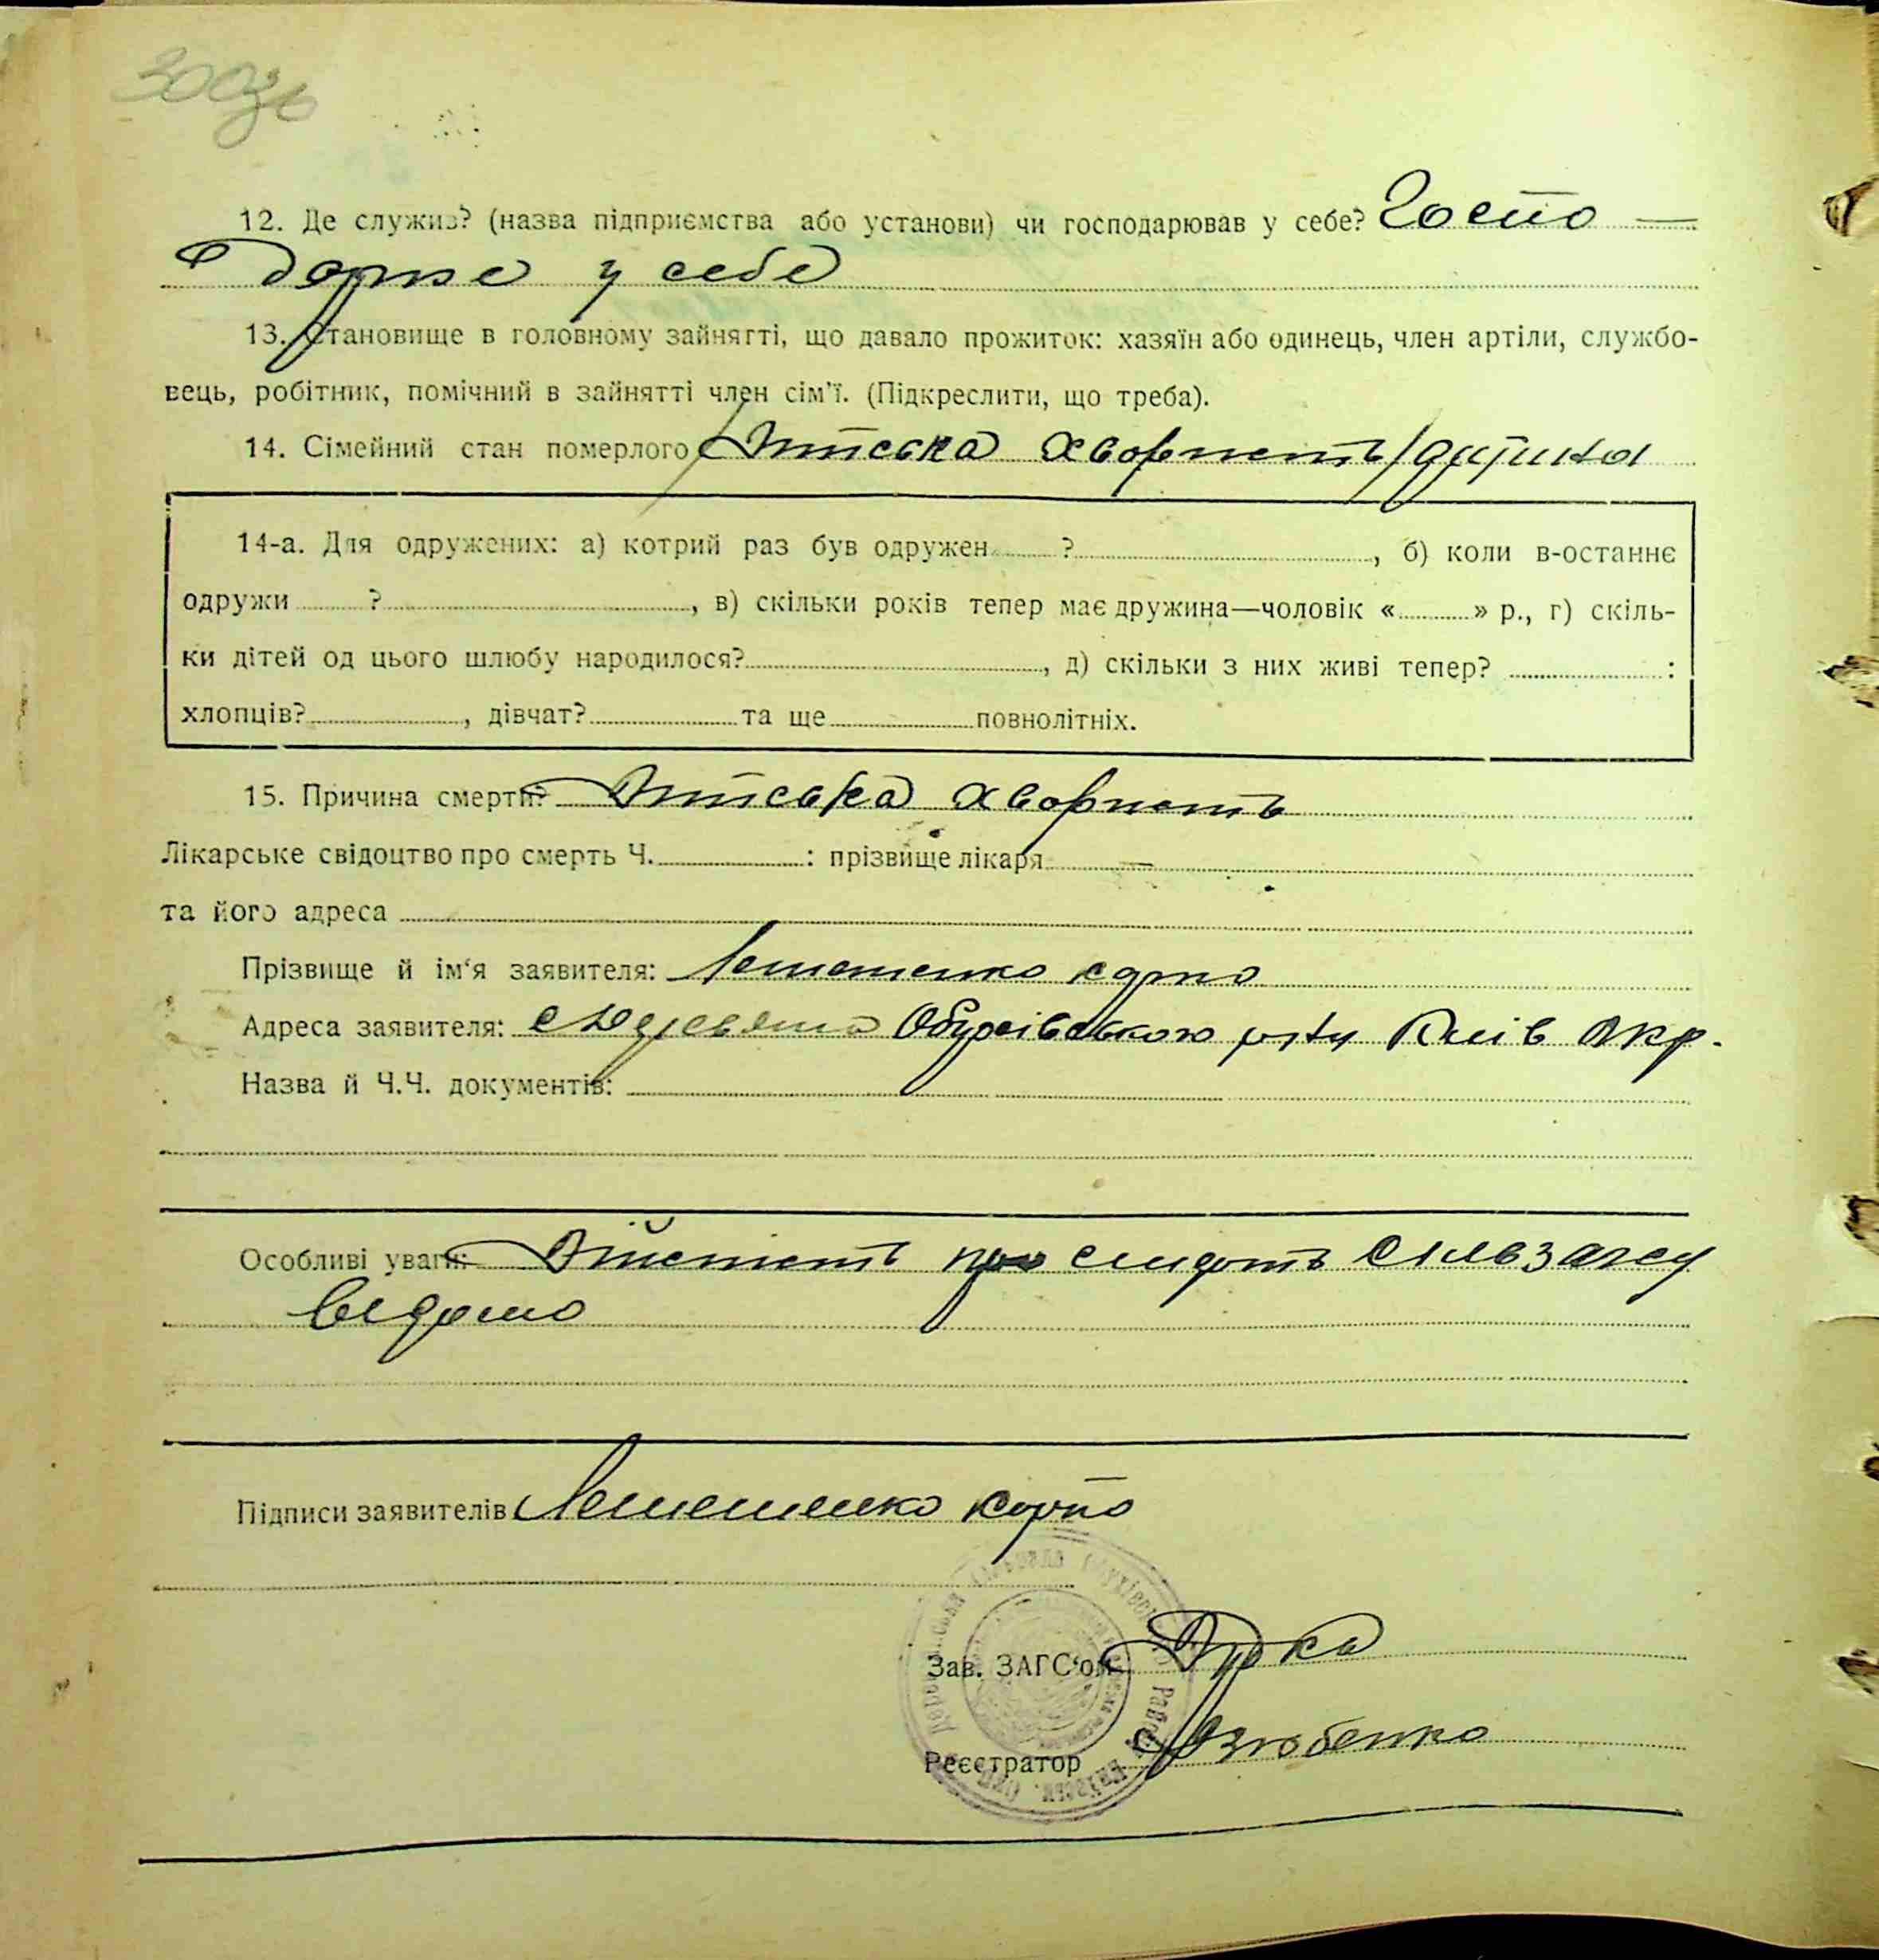 300зв
12. Де служив? (назва підприємства або установи) чи господарював у себе? Госпо —
дарює у себе
13. Становище в головному зайнятті, що давало прожиток: хазяїн або одинець, член артіли, службо-
вець, робітник, помічний в зайнятті член сім'ї. (Підкреслити, що треба).
14. Сімейний стан померлого Дитська хворность / дитина
14-а. Для одружених: а) котрий раз був одружен ? , б) коли в-останнє
одружи ? , в) скільки років тепер має дружина—чоловік « » р., г) скіль-
ки дітей од цього шлюбу народилося? , д) скільки з них живі тепер? :
хлопців? , дівчат? та ще повнолітніх.
15. Причина смерти? Дитська хворность
Лікарське свідоцтво про смерть Ч. : прізвище лікаря —
та його адреса
Прізвище й ім'я заявителя:
Адреса заявителя: с Деревяна Обухівського р-ну Київ Окр.
Назва й Ч.Ч. документів:
Особливі уваги: про сильзагсу
відомо
Підписи заявителів Карпо
Зав. ЗАГС'ом
Реєстратор Дзюбенко